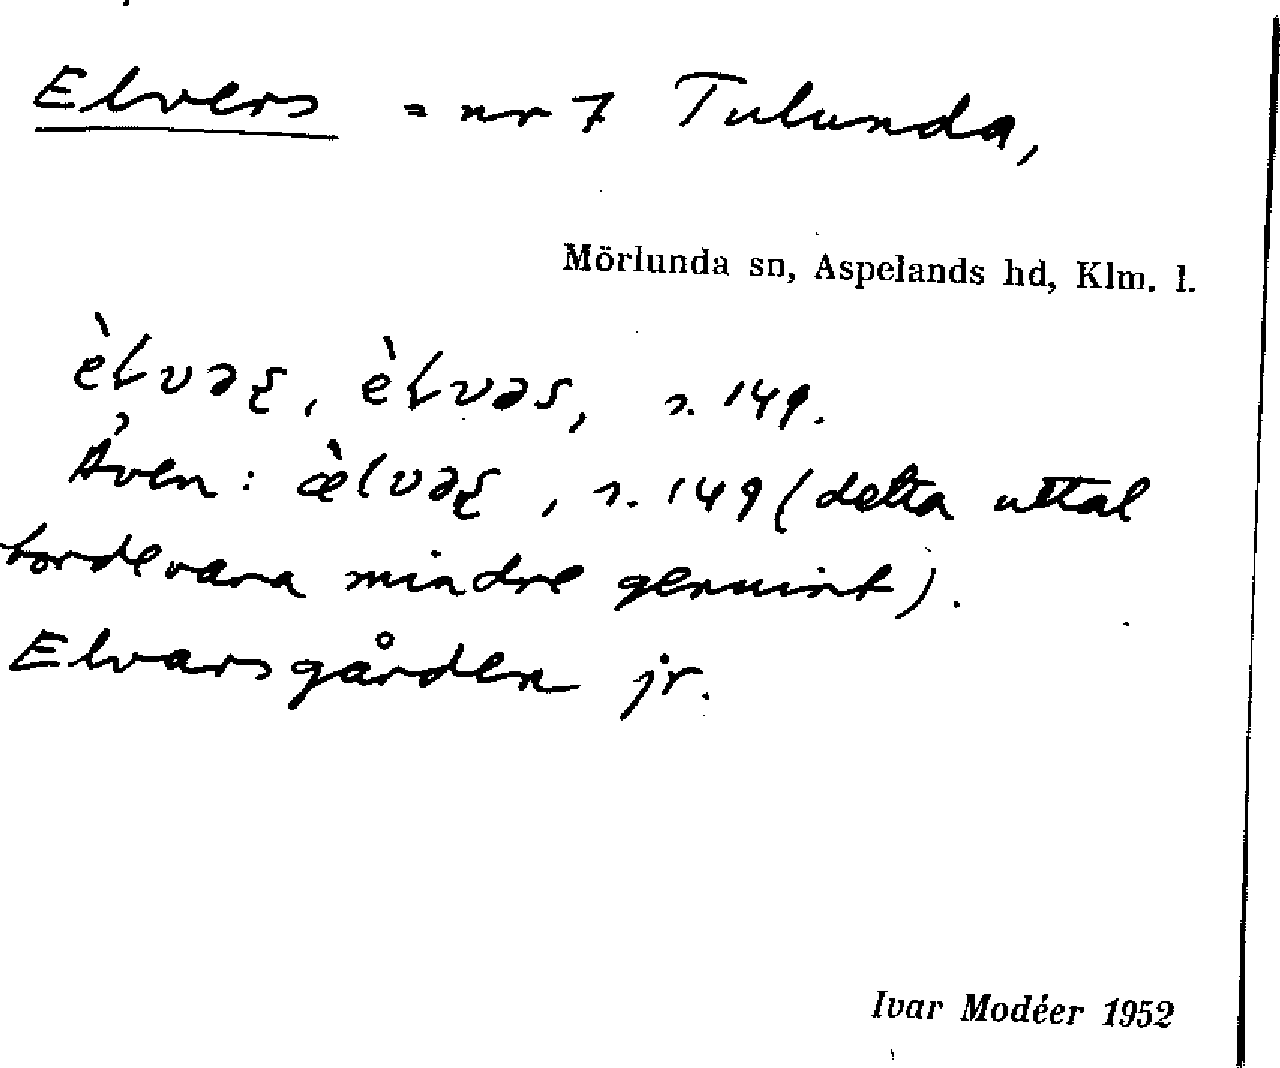 Elvers = nr 7 Tulunda,
Mörlunda sn, Aspelands hd, Klm. l.
èƚvəʂ, èƚvəs, s. 149.
Även: æ̀lvəʂ, s. 149 (detta uttal
torde vara mindre genuint).
Elvarsgården jr.
Ivar Modéer 1952